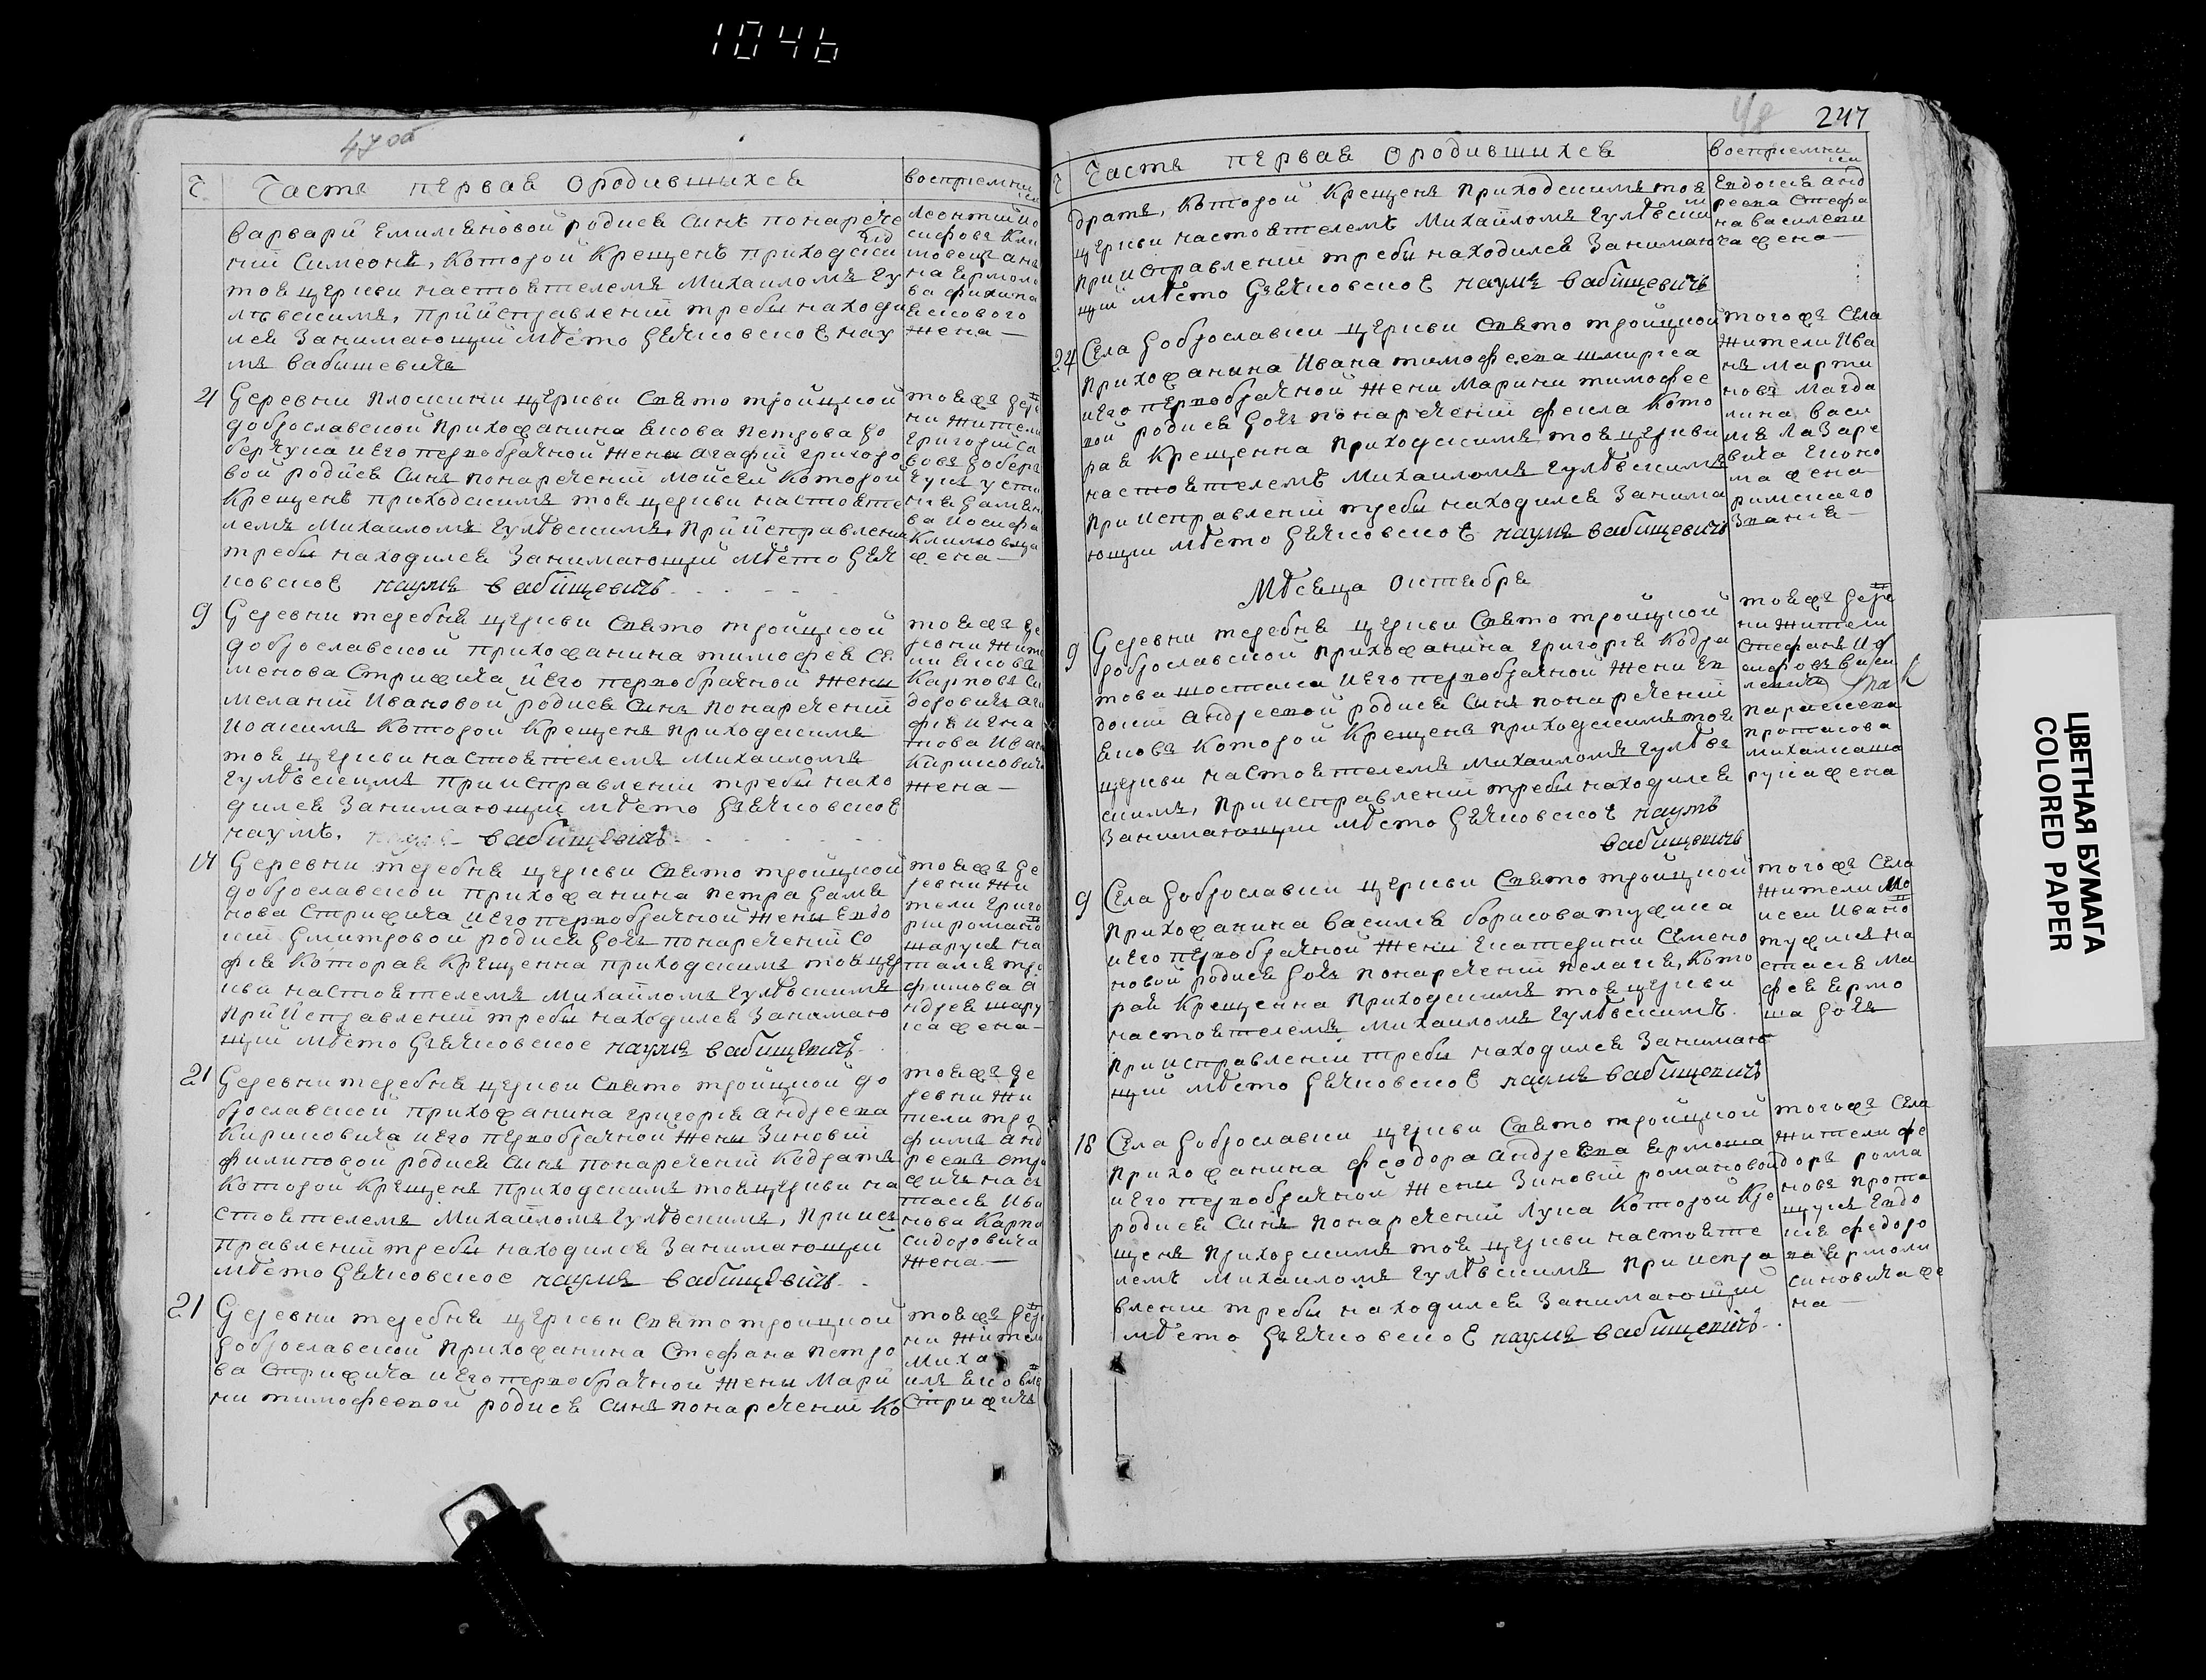 1046
47 об
Ч Часть первая ородившыхся восприемни
ки
варвари Емилияновой родися синъ понарече
ний Симеонъ, которой крещенъ приходски
тоя церкви настоятелемъ Михаиломъ Гу
лъвскимъ, прийсправлений требы находи
лся занимающий мѣсто дьячковское нау
мъ бабышевичъ
Леонтий ио
сифовъ Кли
мовецъ анъ
на Ермоло
ва филипа
жена
4 Деревни Плоскини церкви Свято тройцкой
доброславской прихожанина Якова Петрова до
берчука иего первобрачной жены агафий григоро
вой родися синъ понаречений Моисей которой
крещенъ приходскимъ тоя церкви настояте
лемъ Михаиломъ Гулѣвскимъ, прийсправлений
требы находился занимающий мѣсто дьяч
ковское наумъ бабищевичъ
тояжъ дере
вни жители
григорий са
вовъ добер
чукъ усти
ния дамия
ва иосифа
климовца
жена
9 Деревни теребня церкви Свято тройцкой
доброславской прихожанина тимофея Се
менова Стрижича ийего первобрачной жены
меланий Ивановой родися синъ понаречений
иоакимъ которой крещенъ приходскимъ
тоя церкви настоятелемъ Михаиломъ
Гулѣвскимъ приисправлений требы нахо
дился занимающий мѣсто дьячковское
наумъ. бабищевичъ
тояжъ де
ревни жите
ли Яковъ
карповъ си
доровичъ ага
фия игна
това Ивана
кирисовича
жена
14 Деревни теребня церкви Свято тройцкой
доброславской прихожанина петра дамия
нова Стрижича иего первобрачной жены Евдо
кий Дмитровой родися дочь понаречений со
фия которая крещенна приходскимъ тоя цер
кви настоятелемъ Михайломъ Гулѣвскимъ
прийисправлений требы находился занимаю
щий мѣсто дьячковское наумъ бабищевичъ
тояжъ де
ревни жи
тели григо
рий романов
шарукъ на
талия тро
фимова а
ндрея шару
ка жена
21 Деревни теребня церкви Свято тройцкой до
брославской прихожанина григория андреева
кирисовича иего первобрачной жены Зиновий
филиповой родися синъ понаречений кодратъ
которой крещенъ приходскимъ тоя церкви на
стоятелемъ Михаиломъ Гулѣвскимъ, приис
правлений требы находился занимающий
мѣсто дьячковское наумъ бабищевичъ
тояжъ де
ревни жи
тели тро
фимъ анд
реевъ стри
жичъ нас
тасия ива
нова карпа
сидоровича
жена
21 Деревни теребня церкви Святотройцкой
доброславской прихожанина Стефана петро
ва Стрижича иегопервобрачной жены Мари
ни тимофеевой родися синъ понаречений ко
тояжъ дерев
ни жители
Миха
илъ яковлев
Стрижичъ
48 247
Ч Часть первая Ородившихся восприемни
ки
дратъ, которой крещенъ приходскимъ тоя
церкви настоятелемъ Михайломъ Гулѣвски
м
приисправлений требы находился занимаю
щий мѣсто дьячковское наумъ бабищевичъ
Евдокия анд
реева Стефа
на василеви
ча жена
24 Села доброславки церкви Свято тройцкой
прихожанина Ивана тимофеева шмирка
иего первобрачной жени Марини тимофее
вой родися дочь понаречений фекла кото
рая крещенна приходскимъ тоя церкви
настоятелемъ Михаиломъ Гулѣвскимъ
приисправлений требы находился занима
ющий мѣсто дьячковское наумъ бабищевичъ
тогожъ Села
жители Ива
нъ марти
новъ Магда
лина васи
лия Лазаре
вича Еконо
ма жена
римского
звания
Мѣсяца Октября
9 Деревни теребня церкви Свято тройцкой
доброславской прихожанина григория кодра
това шостака иего первобрачной жени Ев
докии андреевой родися синъ понаречений
яковъ которой крещенъ приходскимъ тоя
церкви настоятелемъ михаиломъ гулѣв
скимъ, приисправлений требы находился
занимающий мѣсто дьячковское наумъ
бабищевичъ
тояжъ дере
вни жители
Стефанъ ио
сифовъ васи
левичъ
параскева
протасова
михаиаша
рукажена
9 Села доброславки церкви Свято тройцкой
прихожанина василия борисова тужика
иего первобрачной жени Екатерини семено
новой родися дочь понаречений пелагия, кото
рая крещенна приходскимъ тоя церкви
настоятелемъ михаиломъ Гулѣвскимъ.
приисправлений требы находился занимаю
щий мѣсто дьячковское наумъ бабищевичъ
тогожъ Села
жители Мо
исей Ивано
тужикъ на
стасия ма
фея Ермо
ша дочь
18 Села доброславки церкви Свято тройцкой
прихожанина феодора андреева Ермоша
иего первобрачной жени Зиновий романовой
родися синъ понаречений Лука которой кре
щенъ приходскимъ тоя церкви настояте
лемъ михаиломъ Гулѣвскимъ прииспра
влении требы находился занимающий
мѣсто дьячковское наумъ бабищевичъ.
тогожъ Села
жители фе
доръ рома
новъ прота
щукъ Евдо
кия федоро
ва Ермоли
синовича же
на
ЦВЕТНАЯ БУМАГА
COLORED PAPER